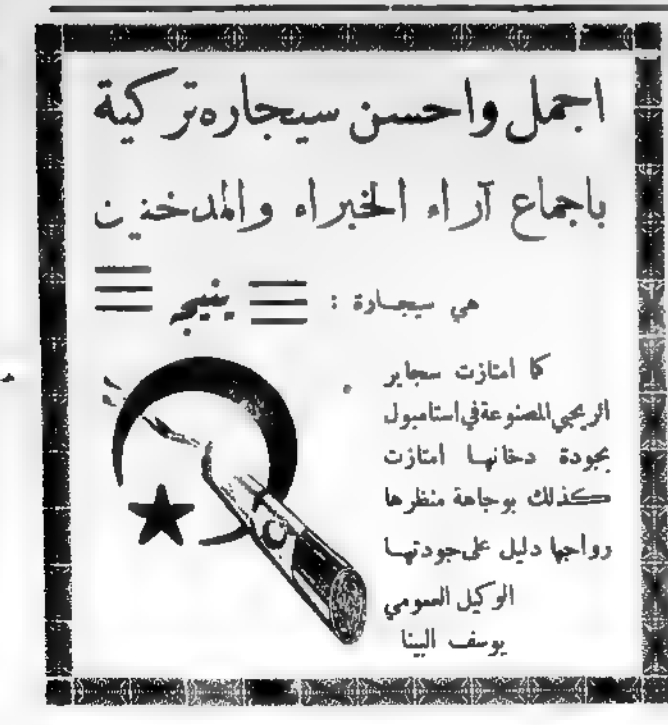 اجمل واحسن سيجاره تركية
باجماع آراء الخبراء والمدخنين
هي سيجارة : ينيجه
كما امتازت سجاير
الريجي المصنوعة في استامبول
بجودة دخانها امتازت
كذلك بوجاهة منظرها
رواجها دليل على جودتها
الوكيل العمومي
يوسف البينا